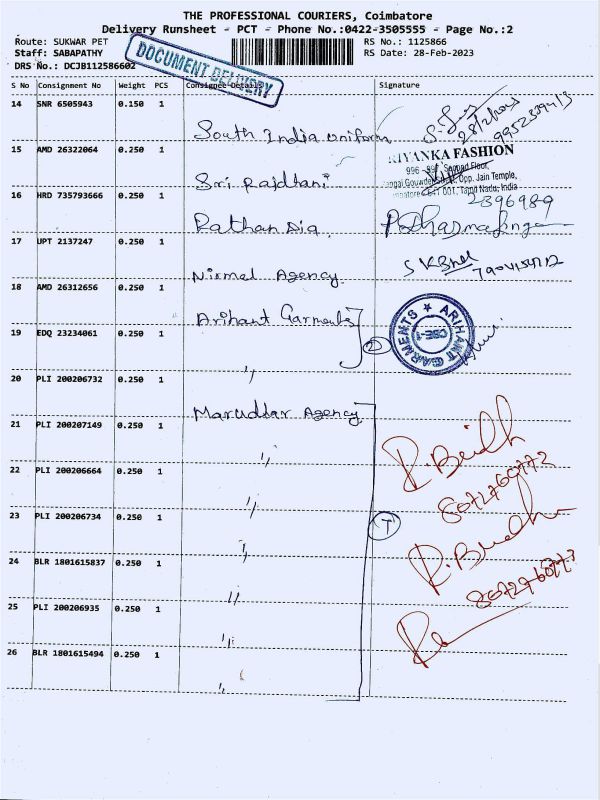 THE PROFESSIONAL COURIERS, Coimbatore
Delivery Runsheet - PCT - Phone No.:0422-3505555 - Page No.:2
Route: SUKWAR PET
RS No.: 1125866
Staff: SABAPATHY
RS Date: 28-Feb-2023
DRS No.: DCJB112586602
DOCUMENT DELIVERY
S No Consignment No Weight PCS Consignee Details Signature
14 SNR 6505943 0.150 1
South India uniform
28/2/2023
15 AMD 26322064 0.250 1
Sri Rajdhani
PRIYANKA FASHION
Second Floor,
Opp. Jain Temple,
641 001, Tamil Nadu, India
2396989
16 HRD 735793666 0.250 1
Rathan Dia
17 UPT 2137247 0.250 1
Nirmal Agency
18 AMD 26312656 0.250 1
Arihant Garments
ARIHANT GARMENTS
19 EDQ 23234061 0.250 1
"
2
20 PLI 200206732 0.250 1
Maruddar Agency
21 PLI 200207149 0.250 1
"
22 PLI 200206664 0.250 1
"
23 PLI 200206734 0.250 1
"
24 BLR 1801615837 0.250 1
"
25 PLI 200206935 0.250 1
"
26 BLR 1801615494 0.250 1
"